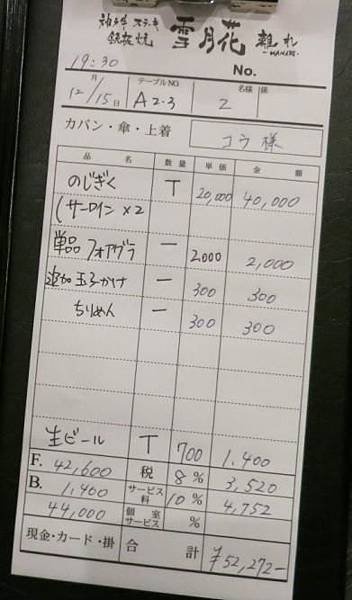 雪月花 離れ
-HANARE-
19:30
No.
月 日 テーブルNO. 名様 係
12/15 A2-3 2
カバン・傘・上着 コウ 様
品 名 数量 単価 金 額
のじぎく T 20,000 40,000
(サーロイン ×2
単品 フォアグラ 一 2,000 2,000
追加 玉子かけ 一 300 300
ちりめん 一 300 300
生ビール T 700 1,400
F. 42,600 税 8% 3,520
B. 1,400 サービス料 10% 4,752
44,000 個室サービス %
現金・カード・掛 合 計 ¥52,272-